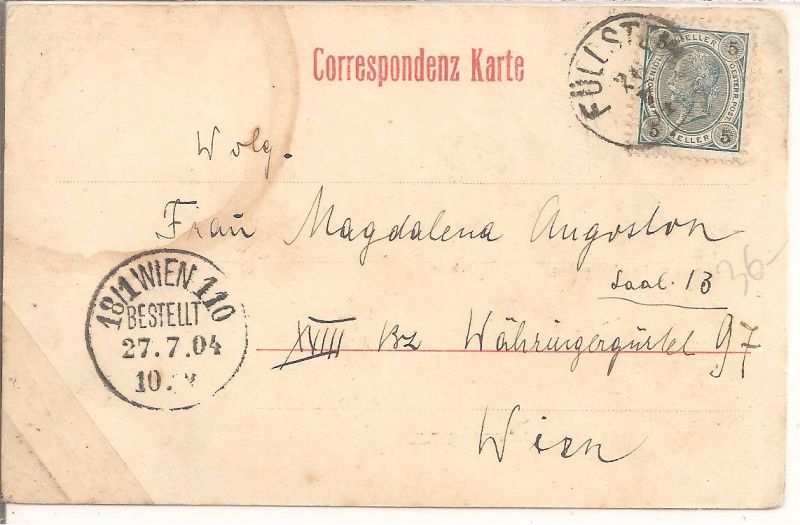 Correspondenz Karte
FÜLLST
5 HELLER 5
OESTERR. POST
5 HELLER 5
Wolg.
Frau Magdalena Angoston
Saal. 13
36-
XVIII Bz Währingergürtel 97
Wien
18/1 WIEN 110
BESTELLT
27.7.04
10.